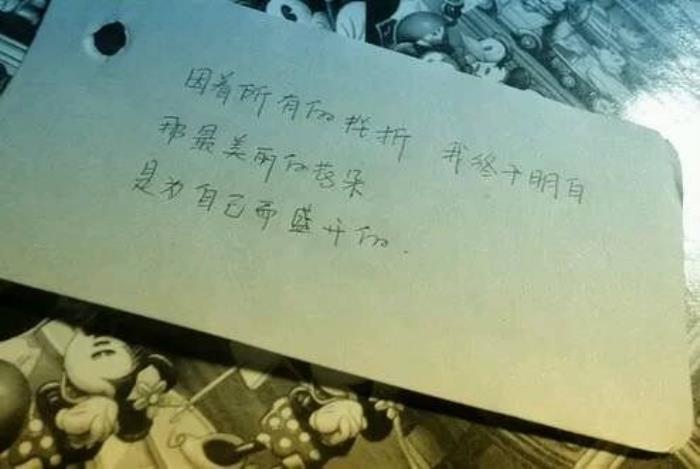 因着所有的挫折 我终于明白
那最美丽的花朵
是为自己而盛开的.